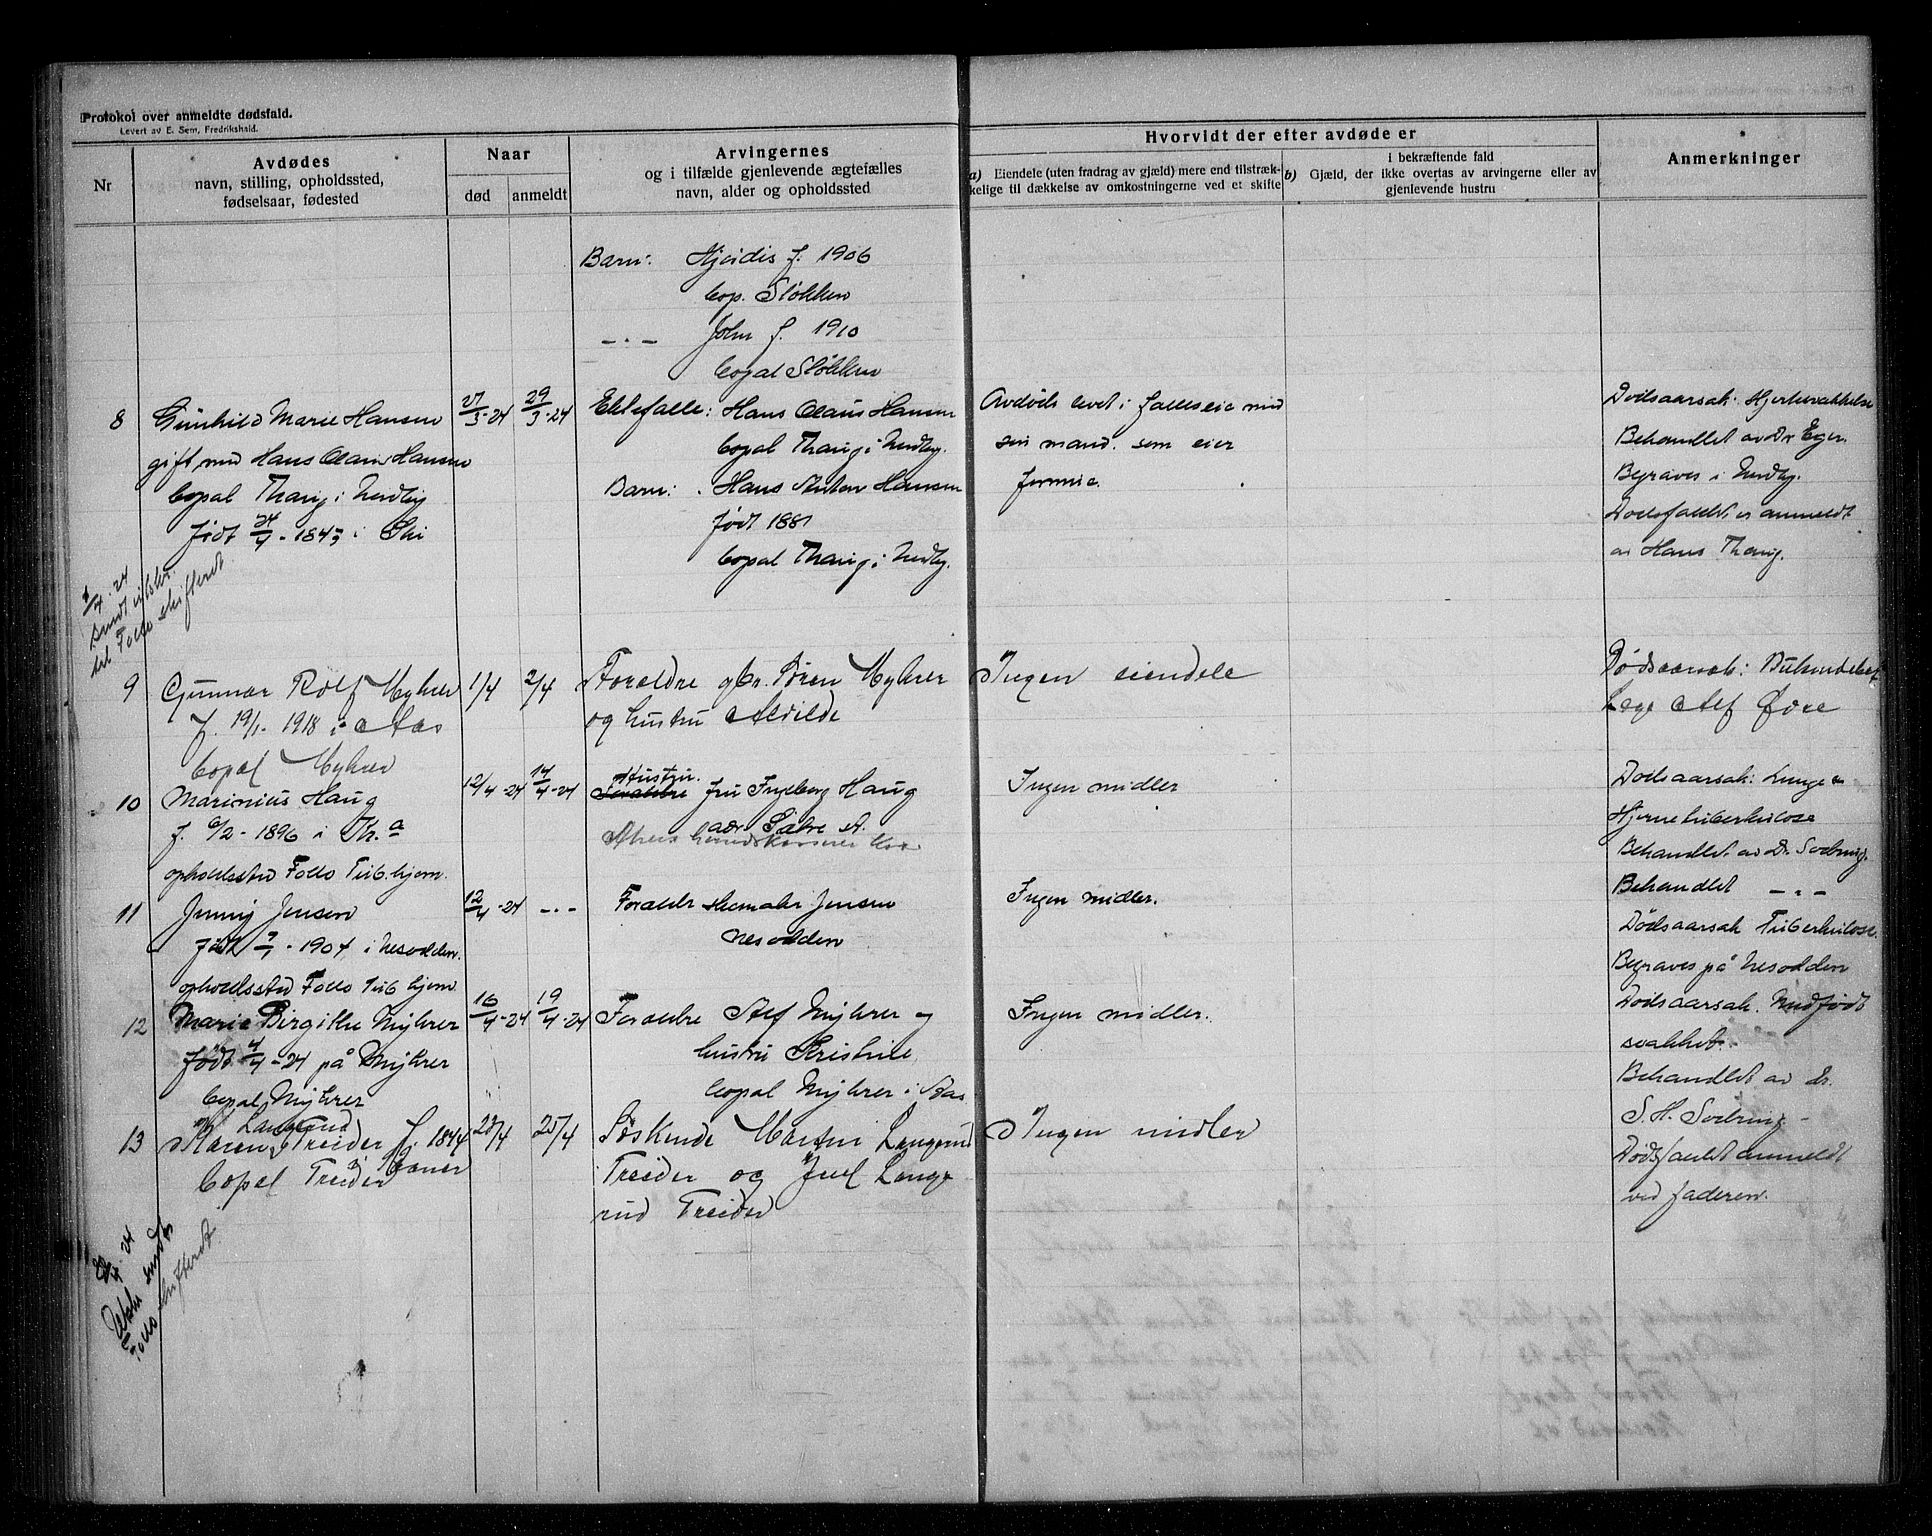 Protokol over anmeldte dødsfald.
Levert av E. Sem, Fredrikshald.
Nr
Avdødes
navn, stilling, opholdssted,
fødselsaar, fødested
Naar
død
anmeldt
Arvingernes
og i tilfælde gjenlevende ægtefælles
navn, alder og opholdssted
Hvorvidt der efter avdøde er
a) Eiendele (uten fradrag av gjæld) mere end tilstræk-
kelige til dækkelse av omkostningerne ved et skifte
i bekræftende fald
b) Gjæld, der ikke overtas av arvingerne eller av
gjenlevende hustru
Anmerkninger
Barn: Hjördis f. 1906
bop. Sløkken
-"- John f. 1910
bopæl Sløkken
8
Gunhild Marie Hansen
gift med Hans Claus Hansen
bopæl Thaug i Nedby
født 24/4 - 1843 i Ski
27/3-24
29/3-24
Ektefælle: Hans Claus Hansen
bopæl Thaug i Nedby.
Barn: Hans Anton Hansen
født 1881
bopæl Thaug i Nedby.
Avdøde levet i fælleseie med
sin mand. som eier
formue.
Dødsaarsak: Hjertesvakkelse
Behandlet av Dr Eger.
Begraves i Nedby.
Dødsfaldet er anmeldt
av Hans Thaug.
1/4-24
sendt utskr.
til Follo skifteret
9
Gunnar Rolf Myhrer
f. 19/1-1918 i Aas
bopæl Myhrer
1/4
2/4
Foræeldre gbr. Søren Myhrer
og hustru Alvilde
Ingen eiendele
Dødsaarsak:
Læge Alf Øore
10
Marinius Haug
f. 6/2 - 1896 i Kr.a
opholdssted Follo Tub.hjem.
12/4-24
14/4-24
Hustru
Forældre fru Ingeborg Haug
adr. Sætre st.
Ingen midler
Dødsaarsak: Lunge &
Hjernetuberkulose
Behandlet av Dr. Sæbrug.
11
Jenny Jensen
født 9/1 - 1904 i Nesodden.
opholdssted Follo Tub hjem
12/4-24
-"-
Forældr skomaker Jensen
Nesodden
Ingen midler.
Behandlet -"-
Dødsaarsak Tuberkulose.
Begraves på Nesodden
12
Marie Birgithe Myhrer
født 4/4-24 på Myhrer
bopæl Myhrer
16/4-24
19/4-24
Forældre Alf Myhrer og
hustru Kristine
bopæl Myhrer i Aas
Ingen midler.
Dødsaarsak. Medfødt
svakhet.
Behandlet av dr.
S. H. Søebrug -
Dødsfaldet anmeldt
ved faderen.
13
Langerud
Maren Treider f. 1844
Garder
bopæl Treider
23/4
25/4
Søskende Martin Langerud
Treider og Juel Lange
rud Treider
Ingen midler
24
Utskr. sendt
Follo skifteret